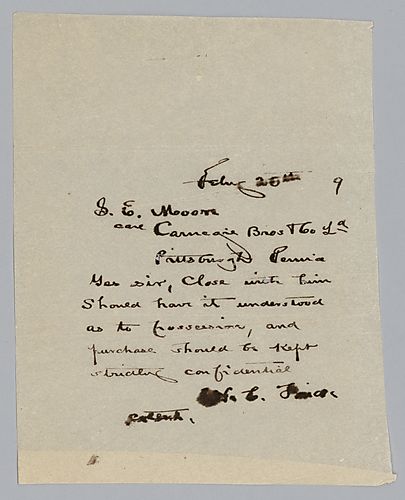 Feby 25th 9
S. E. Moore
care Carnegie Bros & Co Ld
Pittsburgh Penn'a
Yes sir, Close with him
Should have it understood
as to possession, and
purchase should be kept
strictly confidential
H. C. Frick